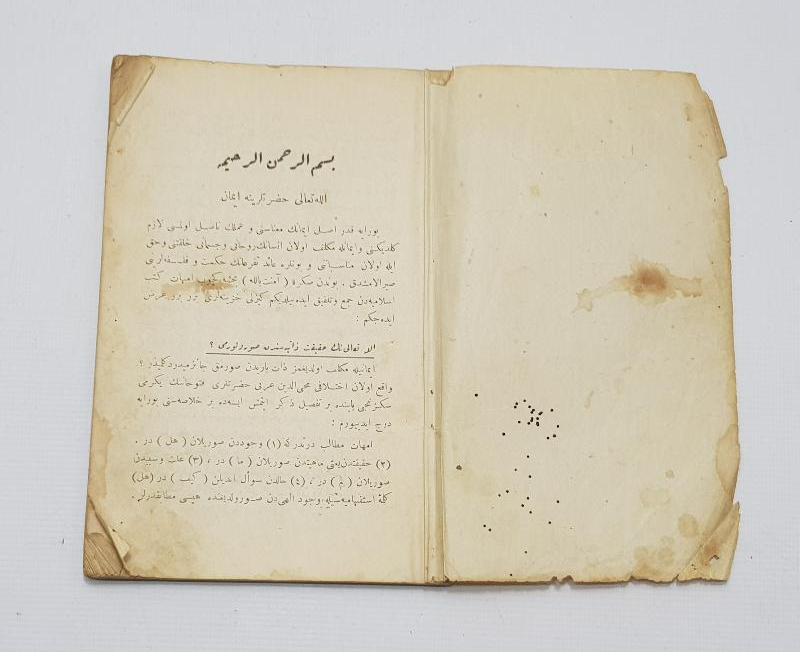 بسم الرحمن الرحيم
الله تعالى حضرتلرينه ايمان
بورايه قدر أصل ايمانك معناسنى و عملك ناصل اولسى لازم
كلديكنى وايمانله مكلف اولان انسانك روحانى وجسمانى خلقتنى وحق
ايله اولان مناسباتنى و بونلره عائد تفرعاتك حكمت و فلسفه‌لرينى
صيرالامشدق . بوندن سكره ( آمنت بالله ) امهات كتب
اسلاميه‌دن جمع وتلفيق ايده بيلديكم كيزلى خزينه‌لرى برر برر عرض
ايده‌جكم :
الله تعالى‌نك حقيقت ذاتيه‌سندن صورولورمى ؟
ايمانيله مكلف اولديغمز ذات باريدن صورمق جائزميدر دكلميدر ؟
واقع اولان اختلافى محي‌الدين عربى حضرتلرى فتوحاتنك يكرمى
سكزنجى بابنده بر تفصيل ذكر ايتمش ايسه‌ده بر خلاصه‌سنى بورايه
درج ايديبورم :
امهات مطالب درتدركه (١) وجوددن صوريلان ( هل ) در .
(٢) حقيقتدن يعنى ماهيتدن صوريلان ( ما ) در ، (٣) علت وسببدن
صوريلان ( لم ) در ، (٤) حالدن سؤال ايديلن ( كيف ) در (هل)
كلهٔ استفهاميه‌سيله وجود الهى‌دن صورولديغنده هپسى متفقدرلر.